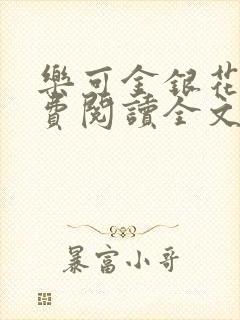 樂可金銀花
費閱讀全文
暴富小哥